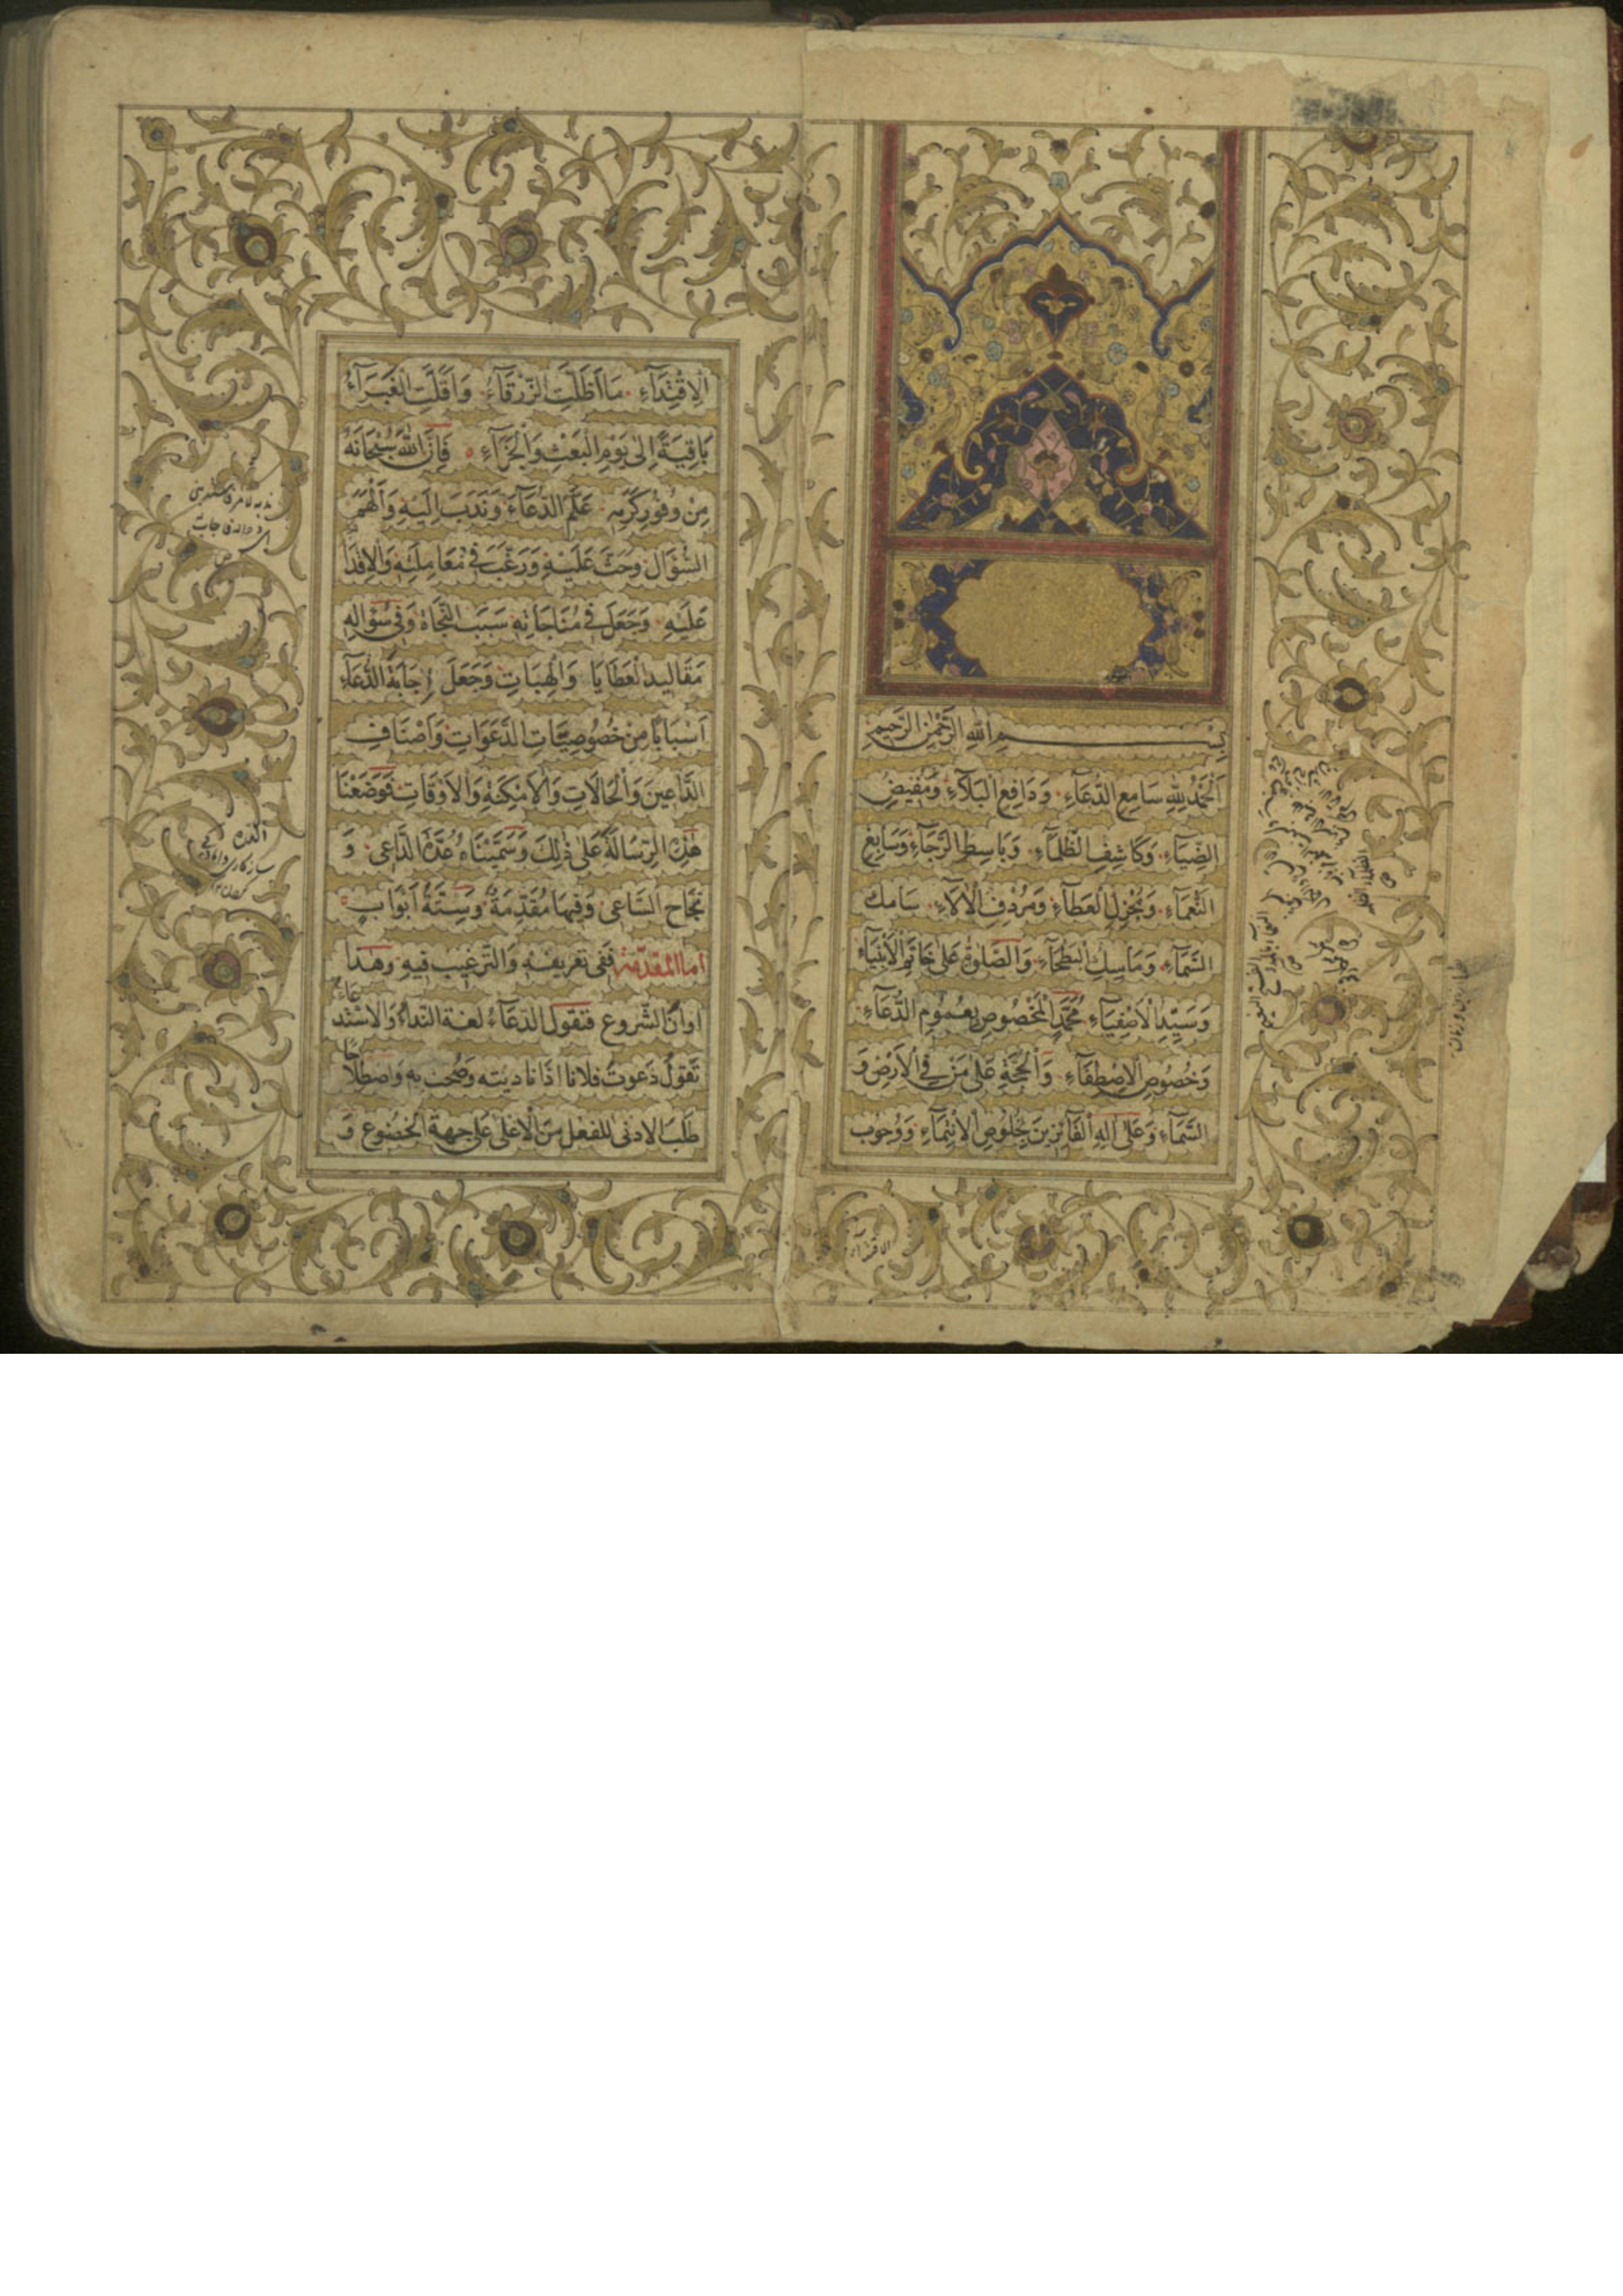 بِسْمِ اللهِ الرَّحْمٰنِ الرَّحِيمِ
اَلْحَمْدُ لِلّٰهِ سَامِعِ الدُّعَآءِ وَدَافِعِ الْبَلَآءِ وَمُفِيضِ
الضِّيَآءِ وَكَاشِفِ الظَّلْمَآءِ وَبَاسِطِ الرَّجَآءِ وَسَابِغِ
النَّعْمَآءِ وَمُجْزِلِ الْعَطَآءِ وَمُرْدِفِ الْاٰلَآءِ سَامِكِ
السَّمَآءِ وَمَاسِكِ الْبَطْحَآءِ وَالصَّلٰوةُ عَلٰى خَاتَمِ الْاَنْبِيَآءِ
وَسَيِّدِ الْاَصْفِيَآءِ مُحَمَّدٍ الْمَخْصُوصِ بِعُمُومِ الدُّعَآءِ
وَخُصُوصِ الْاِصْطِفَآءِ وَالْحُجَّةِ عَلٰى مَنْ فِي الْاَرْضِ وَ
السَّمَآءِ وَعَلٰى اٰلِهِ الْفَآئِزِينَ بِخُلُوصِ الْاِنْتِمَآءِ وَوُجُوبِ
الْاِقْتِدَآءِ مَا اَظَلَّتِ الزَّرْقَآءُ وَاَقَلَّتِ الْغَبْرَآءُ
بَاقِيَةً اِلٰى يَوْمِ الْبَعْثِ وَالْجَزَآءِ فَاِنَّ اللهَ سُبْحَانَهُ
مِنْ وُفُورِ كَرَمِهِ عَلَّمَ الدُّعَآءَ وَنَدَبَ اِلَيْهِ وَاَلْهَمَ
السُّؤَالَ وَحَثَّ عَلَيْهِ وَرَغَّبَ فِي مُعَامَلَتِهِ وَالْاِقْدَامِ
عَلَيْهِ وَجَعَلَ فِي مُنَاجَاتِهِ سَبَبَ النَّجَاةِ وَفِي سُؤَالِهِ
مَقَالِيدَ الْعَطَايَا وَالْهِبَاتِ وَجَعَلَ لِاِجَابَةِ الدُّعَآءِ
اَسْبَابًا مِنْ خُصُوصِيَّاتِ الدَّعَوَاتِ وَاَصْنَافِ
الدَّاعِينَ وَالْحَالَاتِ وَالْاَمْكِنَةِ وَالْاَوْقَاتِ فَوَضَعْنَا
هٰذِهِ الرِّسَالَةَ عَلٰى ذٰلِكَ وَسَمَّيْنَاهُ عُدَّةَ الدَّاعِي وَ
نَجَاحَ السَّاعِي وَفِيهَا مُقَدِّمَةٌ وَسِتَّةُ اَبْوَابٍ
اما المقدّمة فَفِي تعريفه وَالتّرغيب فيهِ وهٰذا
اوانُ الشّروع فنقول الدّعآءُ لغة النّدآءُ وَالاستدعاءُ
تقولُ دَعوتُ فلانا اذا ناديته وصِحت به واصطلاحًا
طَلَبُ الادنٰى للفعلِ مِنَ الْاَعْلٰى عَلٰى جهةِ الخضوع وَ